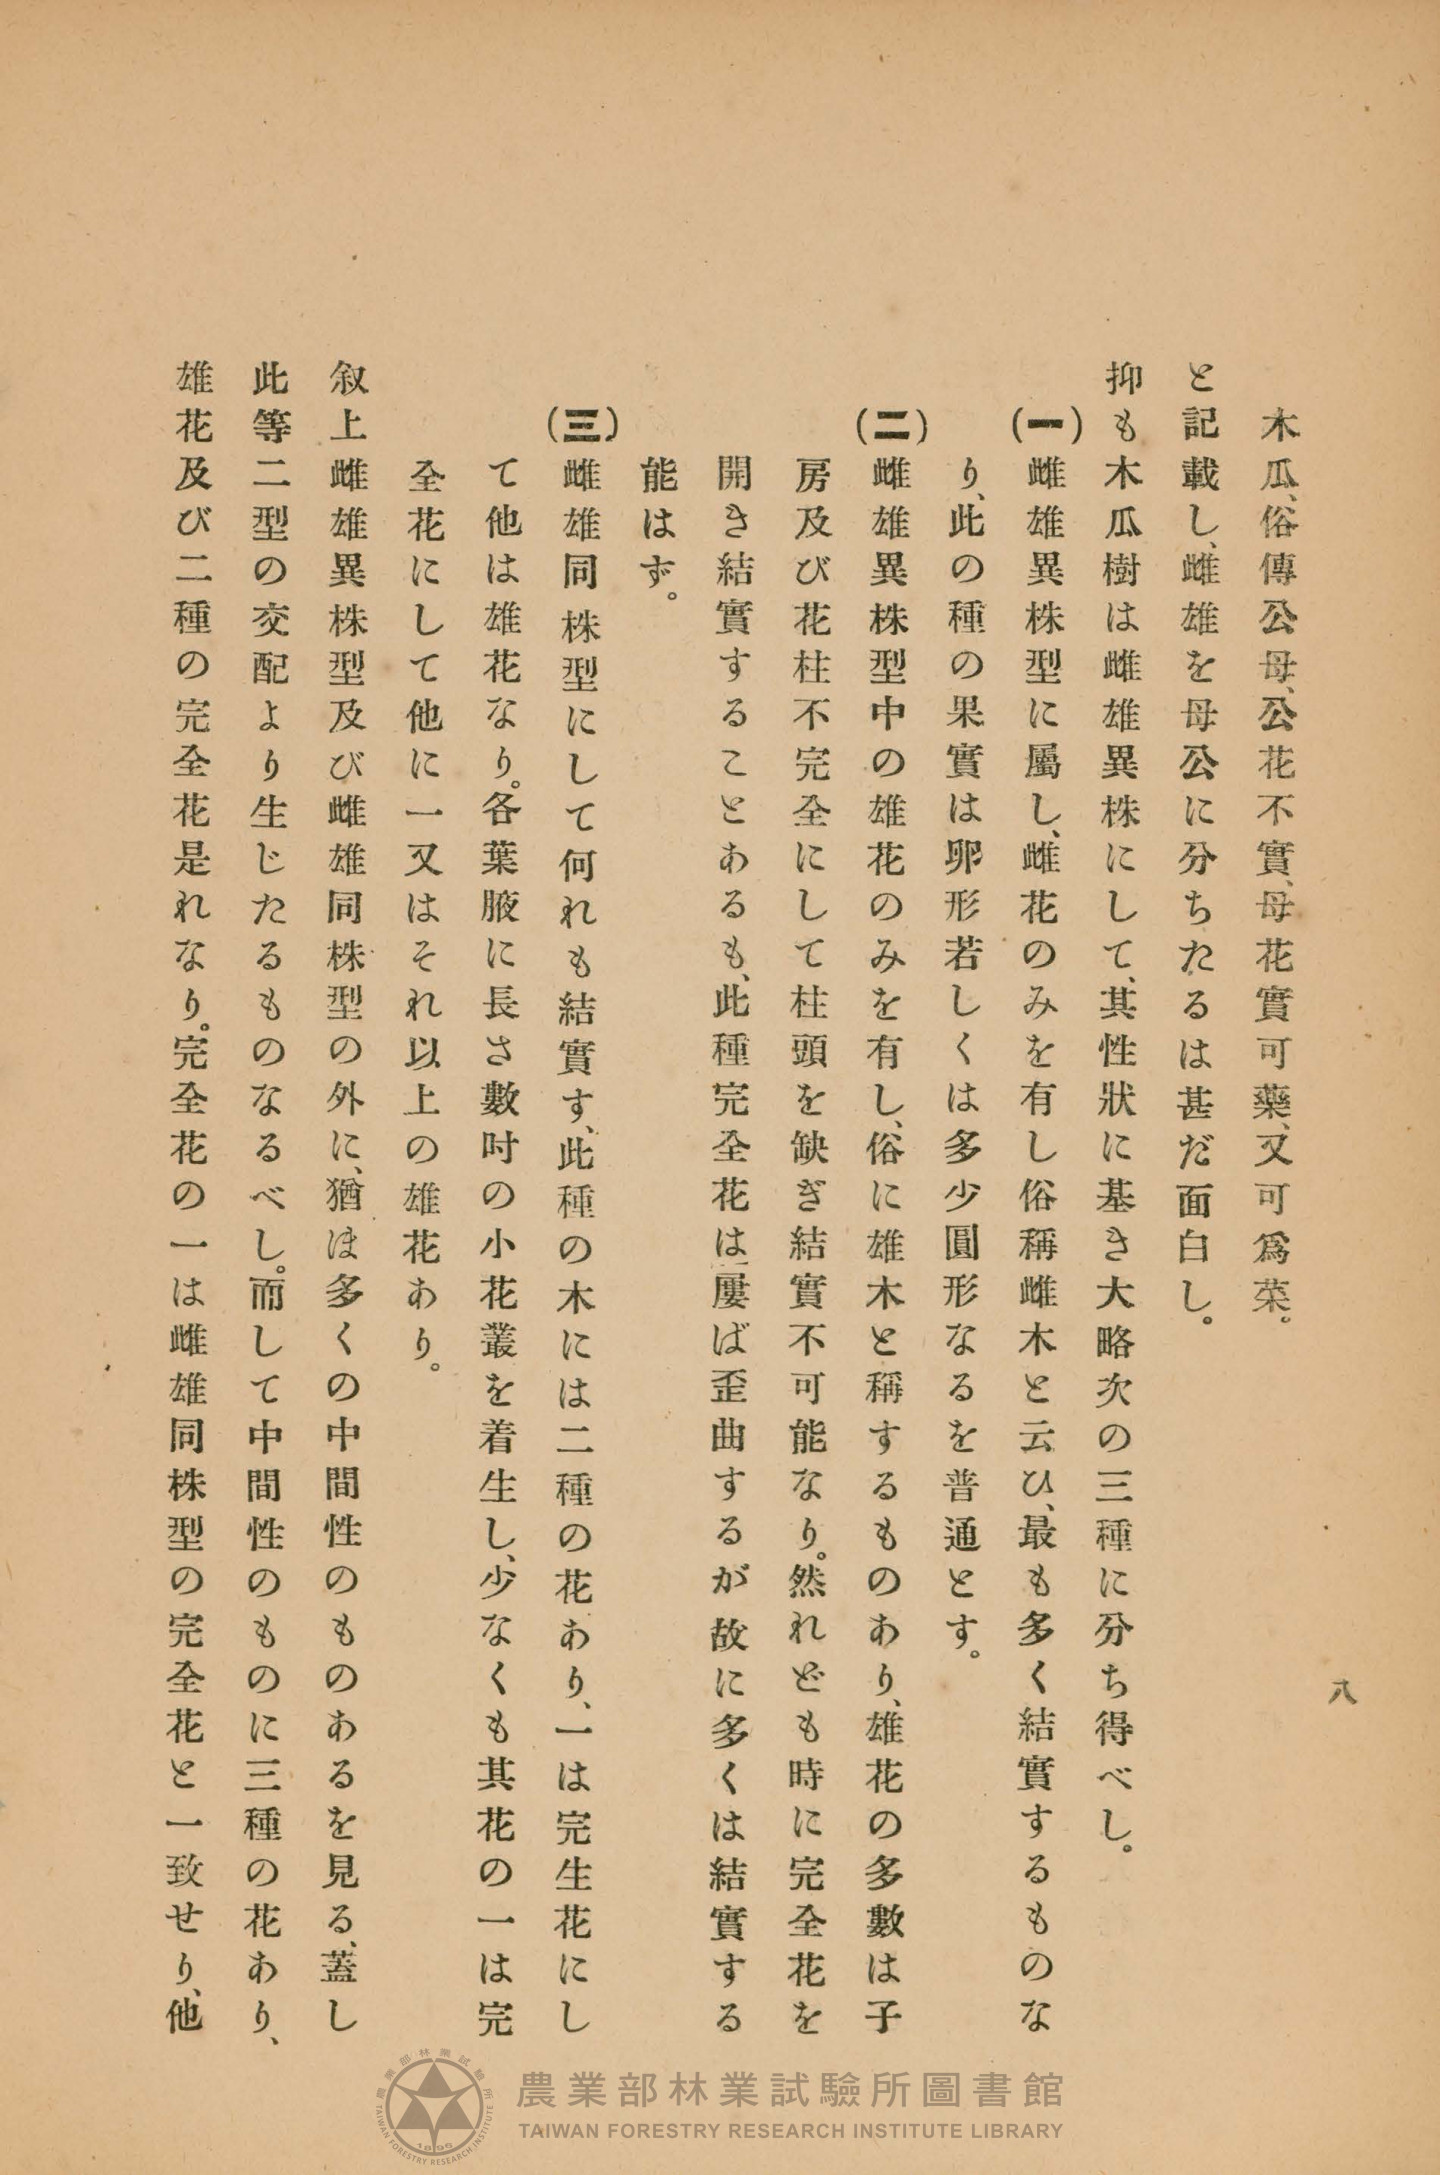 八
木瓜、俗傳公母、公花不實、母花實可藥、又可爲菜。
と記載し、雌雄を母公に分ちたるは甚だ面白し。
抑も木瓜樹は雌雄異株にして、其性狀に基き大略次の三種に分ち得べし。
(一) 雌雄異株型に屬し、雌花のみを有し俗稱雌木と云ひ、最も多く結實するものな
り、此の種の果實は卵形若しくは多少圓形なるを普通とす。
(二) 雌雄異株型中の雄花のみを有し、俗に雄木と稱するものあり、雄花の多數は子
房及び花柱不完全にして柱頭を缺ぎ結實不可能なり。然れども時に完全花を
開き結實することあるも、此種完全花は屢ば歪曲するが故に多くは結實する
能はず。
(三) 雌雄同株型にして何れも結實す、此種の木には二種の花あり、一は完生花にし
て他は雄花なり。各葉腋に長さ數吋の小花叢を着生し、少なくも其花の一は完
全花にして他に一又はそれ以上の雄花あり。
叙上雌雄異株型及び雌雄同株型の外に、猶ほ多くの中間性のものあるを見る、蓋し
此等二型の交配より生じたるものなるべし。而して中間性のものに三種の花あり、
雄花及び二種の完全花是れなり。完全花の一は雌雄同株型の完全花と一致せり、他
農業部林業試驗所圖書館
TAIWAN FORESTRY RESEARCH INSTITUTE LIBRARY
農業部林業試驗所
TAIWAN FORESTRY RESEARCH INSTITUTE
1896